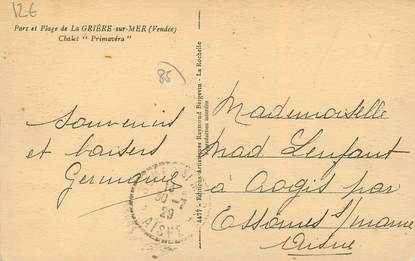 126
Parc et Plage de La GRIÈRE-sur-MER (Vendée)
Chalet " Primavéra "
85
Souvenirs
et baisers
Germaine
15
30-7
29
AISNE
4477 - Editions Artistiques Raymond Bergevin - La Rochelle
Reproduction interdite
Mademoiselle
Mad Lenfant
à Crogis par
Essômes s/marne
Aisne